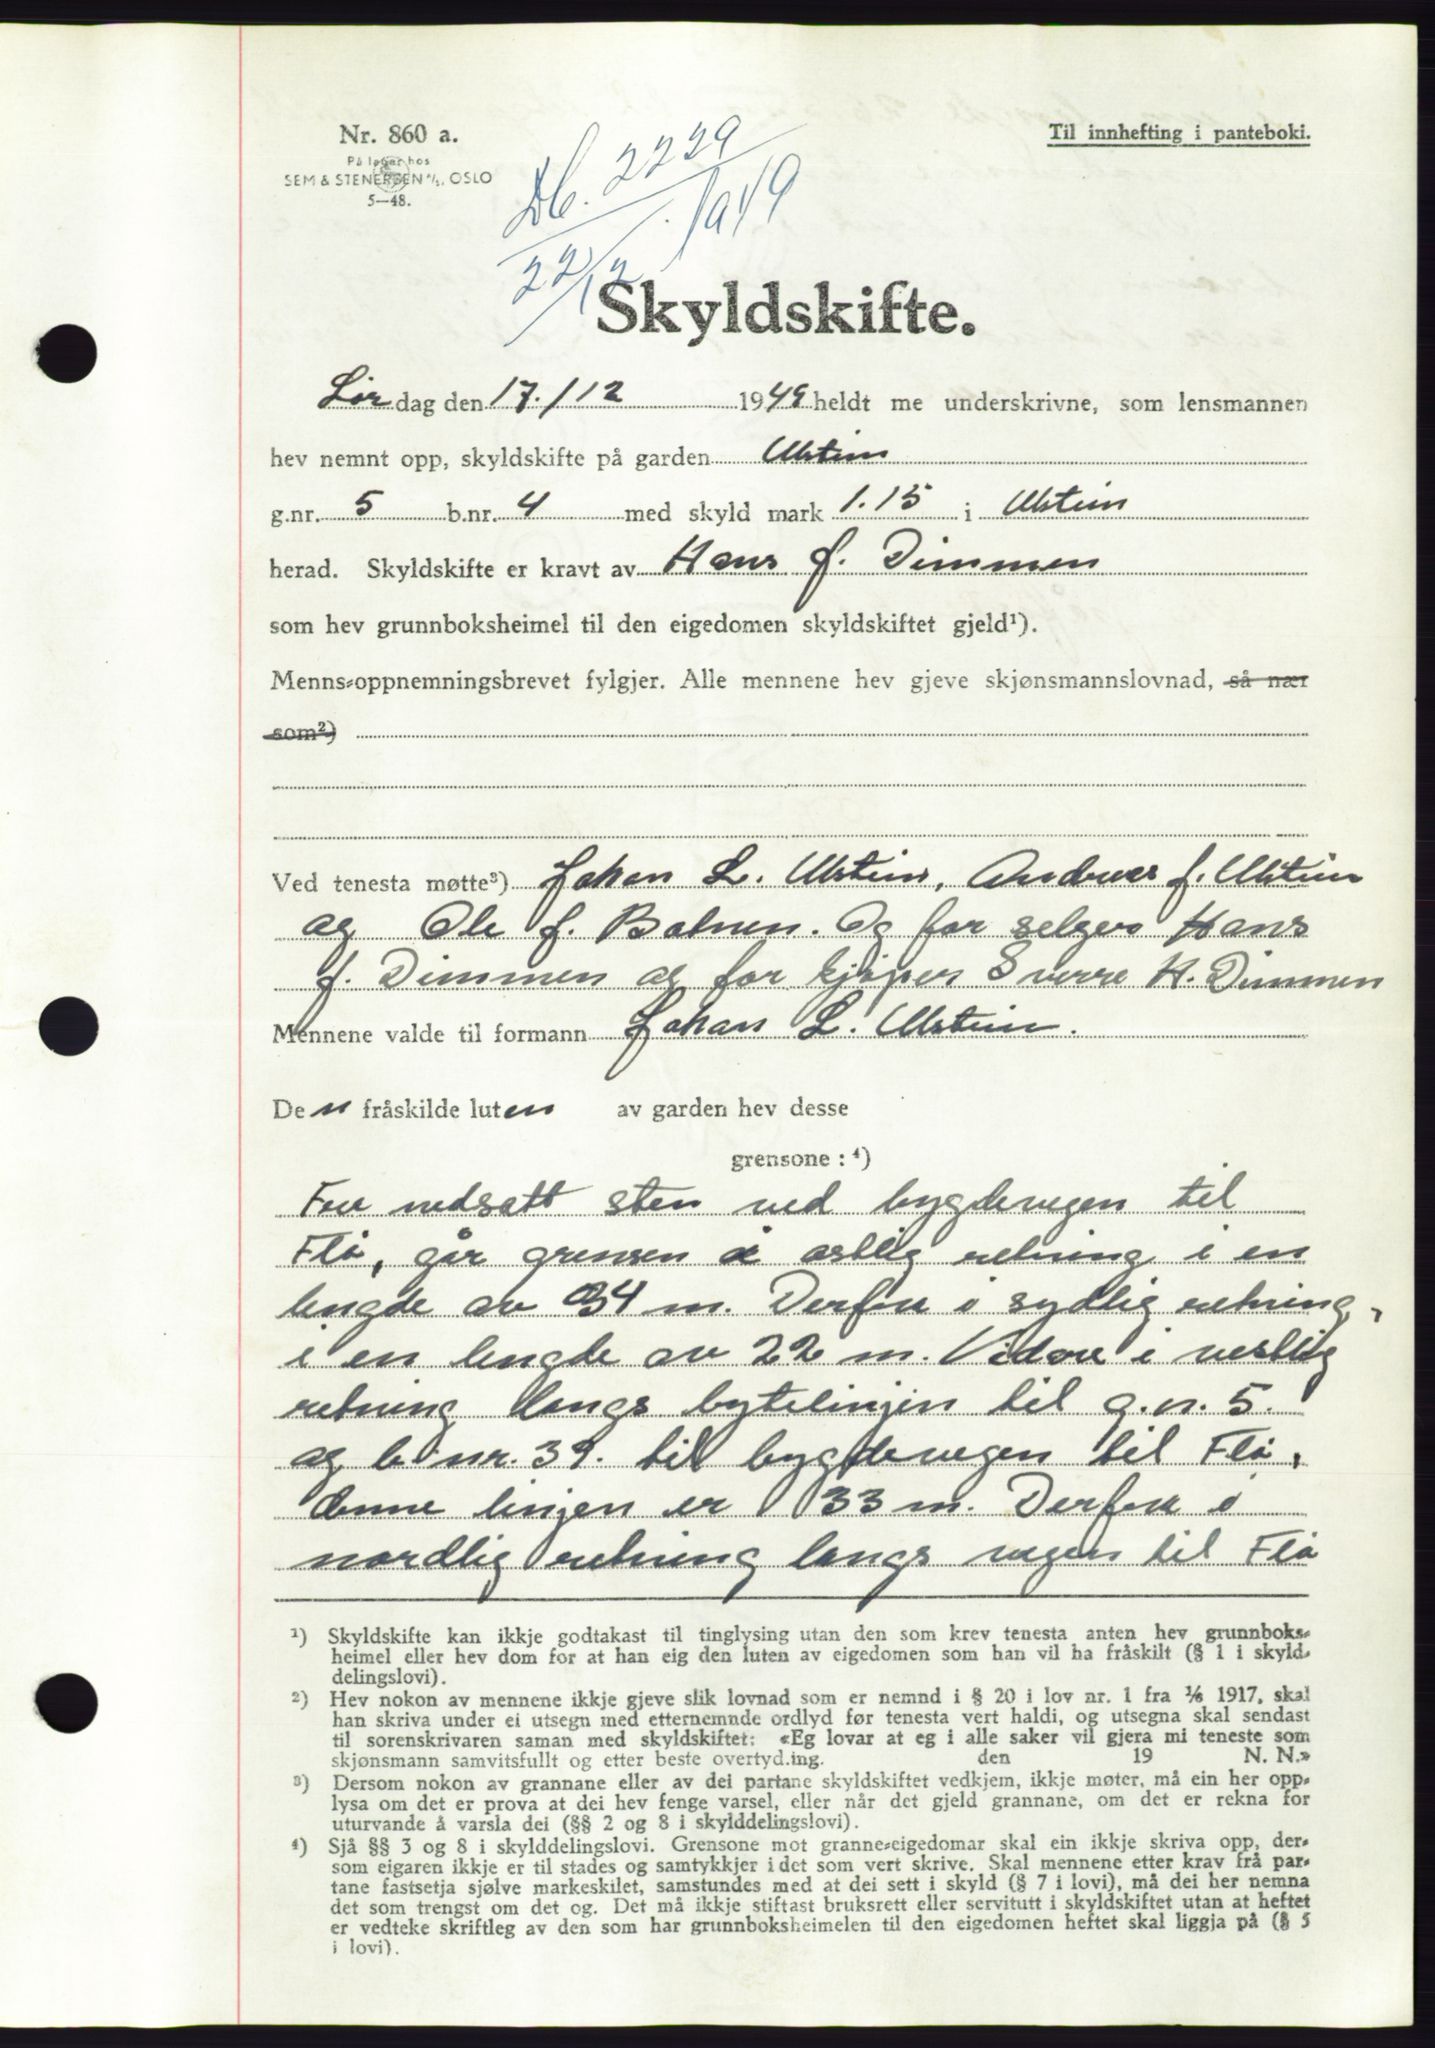 Nr. 860 a.
På lager hos
SEM & STENERSEN A/S, OSLO
5—48.
Til innhefting i panteboki.
Db. 2229
22/12. 1949
Skyldskifte.
Lør dag den 17./12 1949 heldt me underskrivne, som lensmannen
hev nemnt opp, skyldskifte på garden Ulstein
g.nr. 5 b.nr. 4 med skyld mark 1.15 i Ulstein
herad. Skyldskifte er kravt av Hans J. Dimmen
som hev grunnboksheimel til den eigedomen skyldskiftet gjeld¹).
Menns-oppnemningsbrevet fylgjer. Alle mennene hev gjeve skjønsmannslovnad, så nær
som²)
Ved tenesta møtte³) Johan L. Ulstein, Andreas J. Ulstein
og Ole J. Botnen. Og for selger Hans
J. Dimmen og for kjøper Sverre H. Dimmen
Mennene valde til formann Johan L. Ulstein.
Den fråskilde luten av garden hev desse
grensone : ⁴)
Fra nedsatt sten ved bygdevegen til
Flø, går grensen i østlig retning i en
lengde av 34 m. Derfra i sydlig retning,
i en lengde av 22 m. Vidare i vestlig
retning langs bytelinjen til g.n. 5.
og b.nr. 39. til bygdevegen til Flø,
denne linjen er 33 m. Derfra i
nordlig retning langs vegen til Flø
¹) Skyldskifte kan ikkje godtakast til tinglysing utan den som krev tenesta anten hev grunnboks-
heimel eller hev dom for at han eig den luten av eigedomen som han vil ha fråskilt (§ 1 i skyld-
delingslovi).
²) Hev nokon av mennene ikkje gjeve slik lovnad som er nemnd i § 20 i lov nr. 1 fra 1/6 1917, skal
han skriva under ei utsegn med etternemnde ordlyd før tenesta vert haldi, og utsegna skal sendast
til sorenskrivaren saman med skyldskiftet: «Eg lovar at eg i alle saker vil gjera mi teneste som
skjønsmann samvitsfullt og etter beste overtyding. den 19 N. N.»
³) Dersom nokon av grannane eller av dei partane skyldskiftet vedkjem, ikkje møter, må ein her opp-
lysa om det er prova at dei hev fenge varsel, eller når det gjeld grannane, om det er rekna for
uturvande å varsla dei (§§ 2 og 8 i skylddelingslovi).
⁴) Sjå §§ 3 og 8 i skylddelingslovi. Grensone mot granne-eigedomar skal ein ikkje skriva opp, der-
som eigaren ikkje er til stades og samtykkjer i det som vert skrive. Skal mennene etter krav frå par-
tane fastsetja sjølve markeskilet, samstundes med at dei sett i skyld (§ 7 i lovi), må dei her nemna
det som trengst om det og. Det må ikkje stiftast bruksrett eller servitutt i skyldskiftet utan at heftet
er vedteke skriftleg av den som har grunnboksheimelen til den eigedomen heftet skal liggja på (§ 5
i lovi).